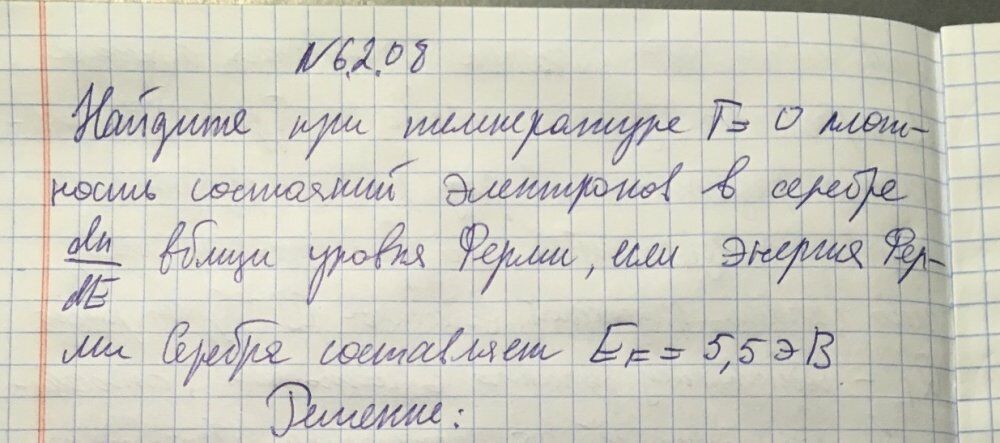 №6.2.08
Найдите при температуре T=0 плот-
ность состояний электронов в серебре
dn/dE вблизи уровня Ферми, если энергия Фер-
ми серебра составляет E_F = 5,5 эВ
Решение: